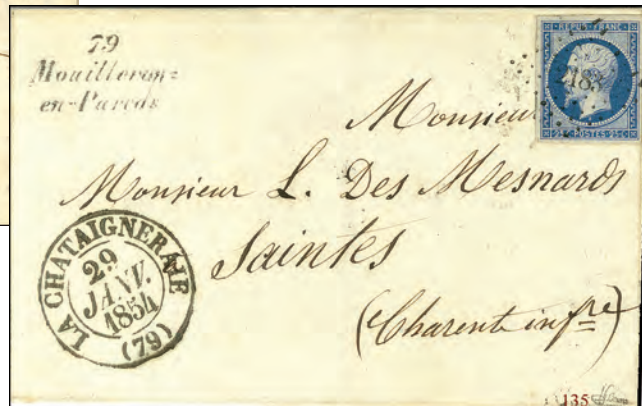 79
Mouilleron=
en-Pareds
REPUB. FRANC.
2183
Monsieur
Monsieur L. Des Mesnards
Saintes
(Charente infre)
LA CHATAIGNERAIE
29
JANV.
1854
(79)
135